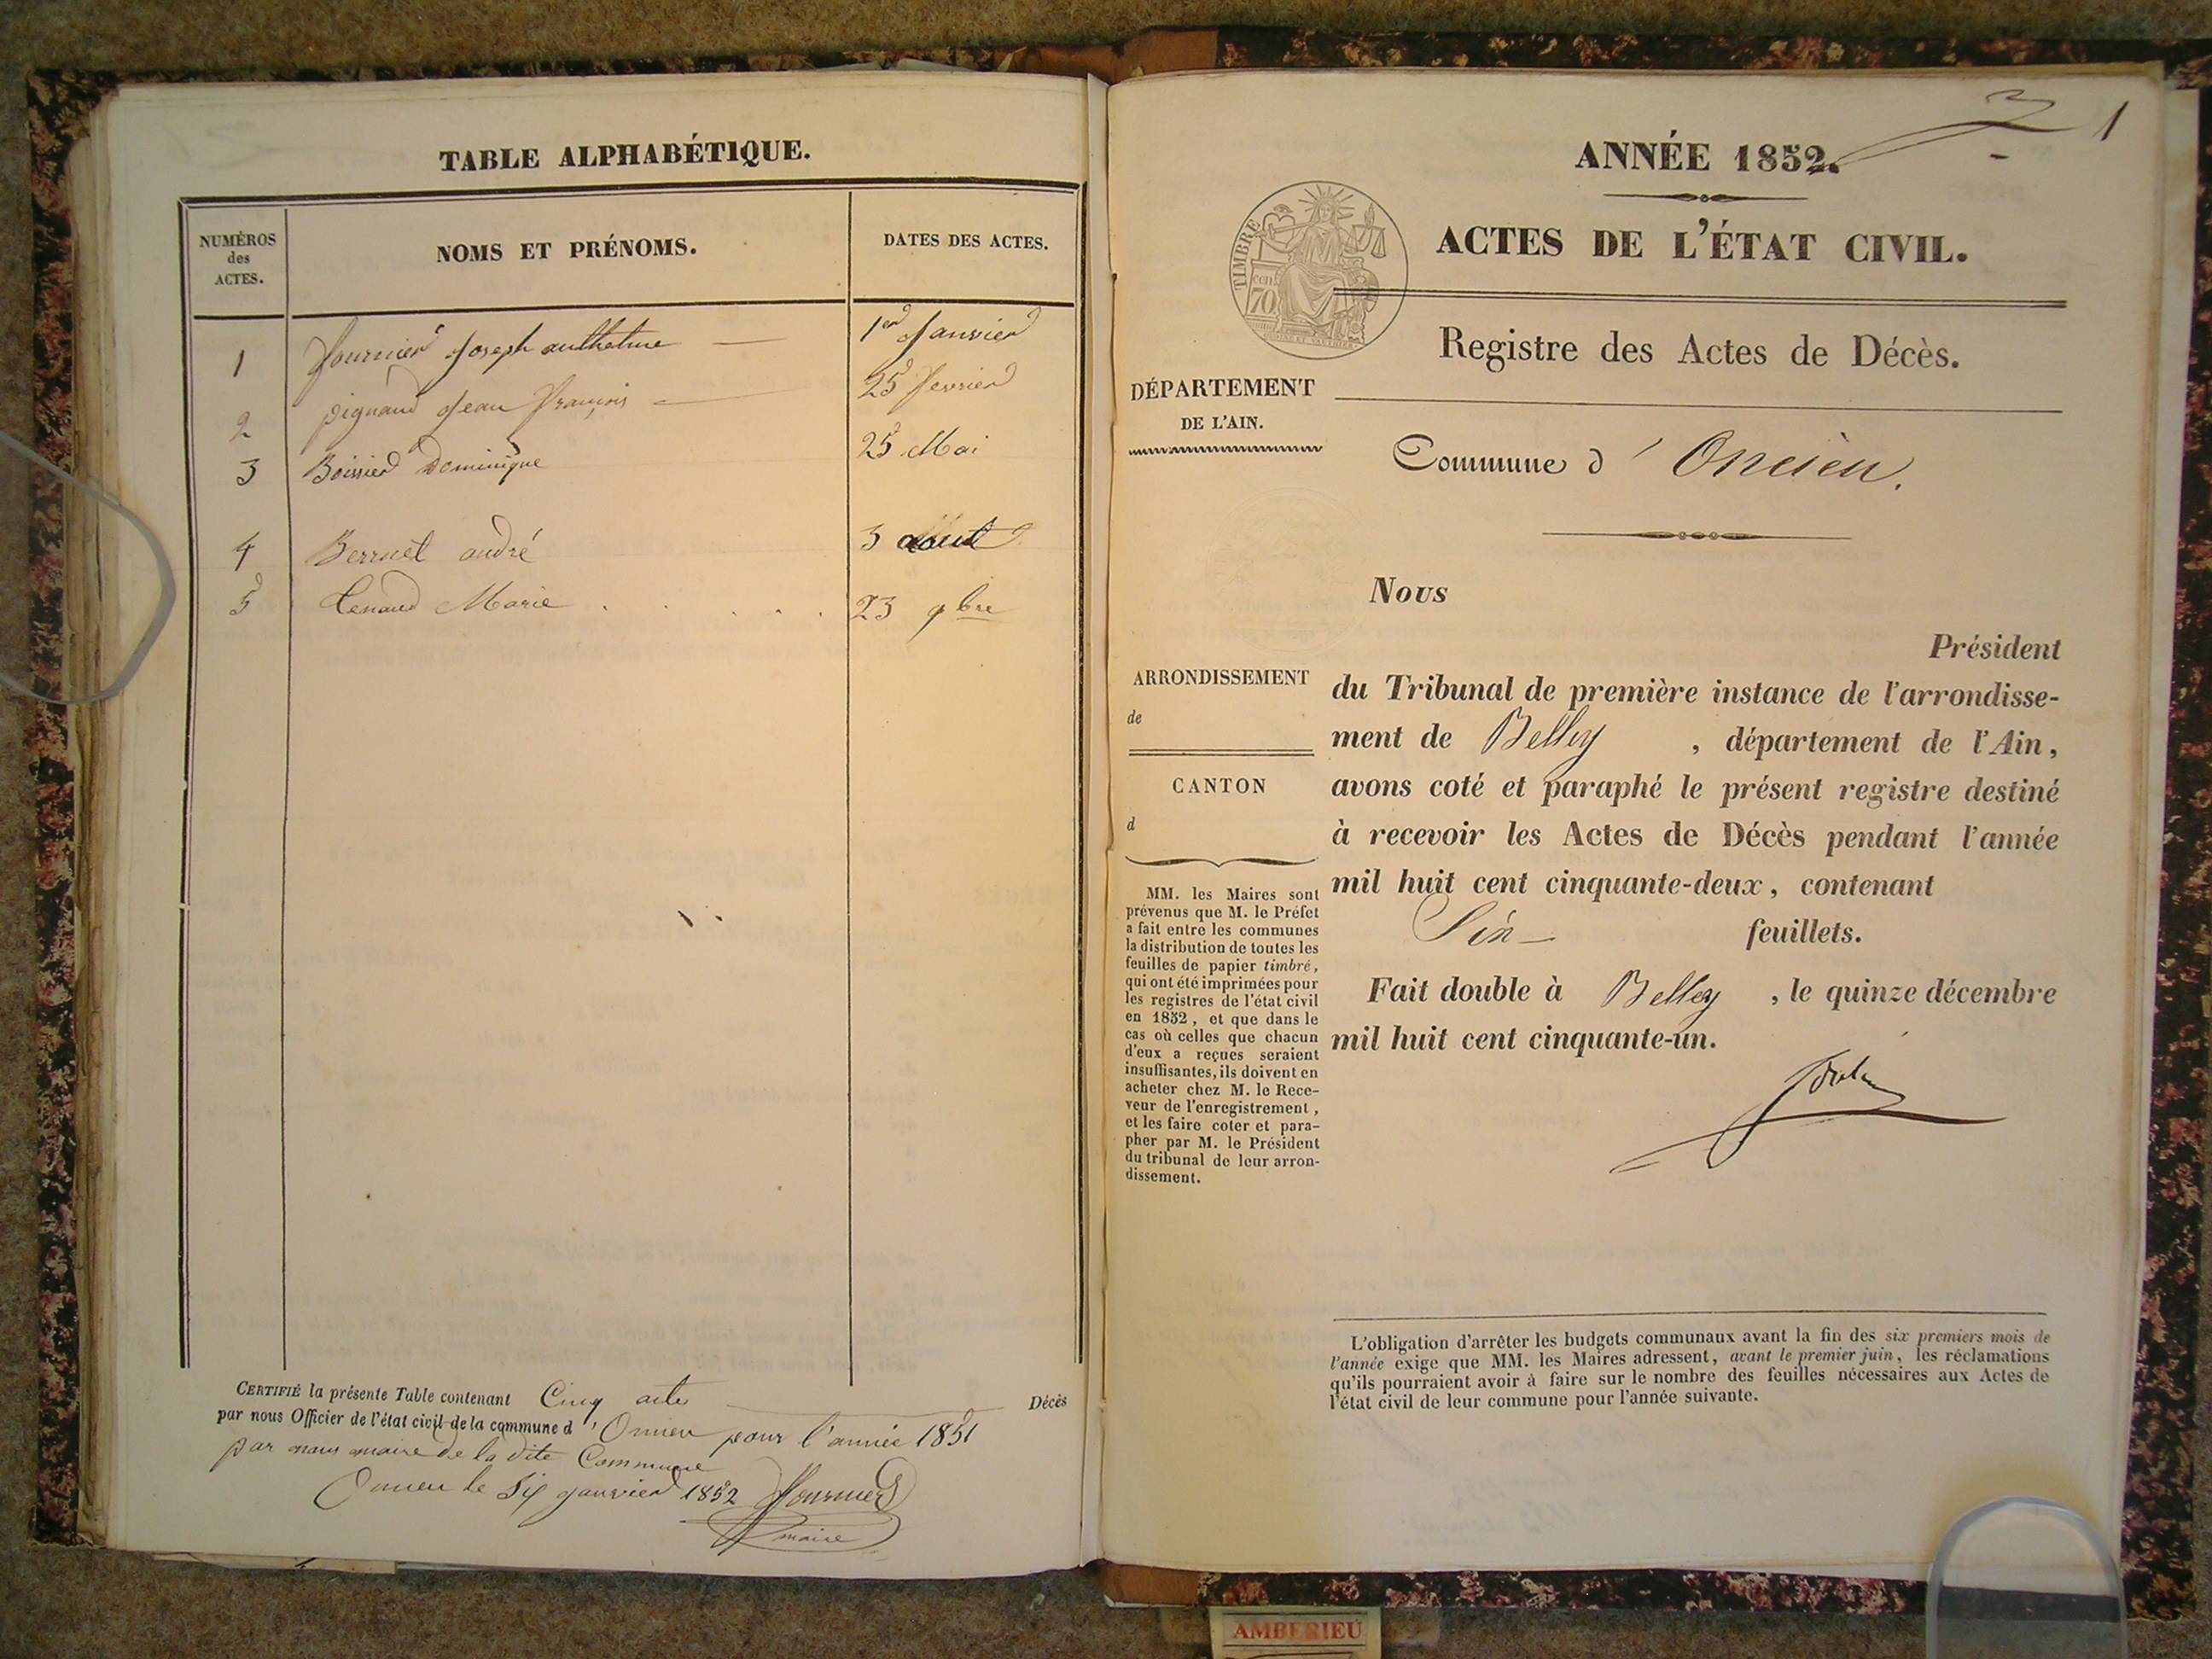 TABLE ALPHABÉTIQUE.
NUMÉROS des ACTES.
NOMS ET PRÉNOMS.
DATES DES ACTES.
1 Fournier Joseph anthelme — 1er Janvier
2 pignaud Jean François — 25 fevrier
3 Boissier Dominique 25 Mai
4 Berruet andré 3 aout
5 Marie . . . . . 23 9bre
CERTIFIÉ la présente Table contenant Cinq actes Décès
par nous Officier de l'état civil de la commune d'Oncieu pour l'année 1851
par nous maire de la dite Commune
Oncieu le Six janvier 1852 Fournier
maire
1
ANNÉE 1852.
ACTES DE L'ÉTAT CIVIL.
TIMBRE
cen
70
Registre des Actes de Décès.
DÉPARTEMENT
DE L'AIN.
Commune d'Oncieu.
Nous
Président
ARRONDISSEMENT
de
CANTON
d
du Tribunal de première instance de l'arrondisse-
ment de Belley , département de l'Ain,
avons coté et paraphé le présent registre destiné
à recevoir les Actes de Décès pendant l'année
mil huit cent cinquante-deux, contenant
Six — feuillets.
Fait double à Belley , le quinze décembre
mil huit cent cinquante-un.
MM. les Maires sont
prévenus que M. le Préfet
a fait entre les communes
la distribution de toutes les
feuilles de papier timbré,
qui ont été imprimées pour
les registres de l'état civil
en 1852, et que dans le
cas où celles que chacun
d'eux a reçues seraient
insuffisantes, ils doivent en
acheter chez M. le Rece-
veur de l'enregistrement,
et les faire coter et para-
pher par M. le Président
du tribunal de leur arron-
dissement.
L'obligation d'arrêter les budgets communaux avant la fin des six premiers mois de
l'année exige que MM. les Maires adressent, avant le premier juin, les réclamations
qu'ils pourraient avoir à faire sur le nombre des feuilles nécessaires aux Actes de
l'état civil de leur commune pour l'année suivante.
AMBERIEU